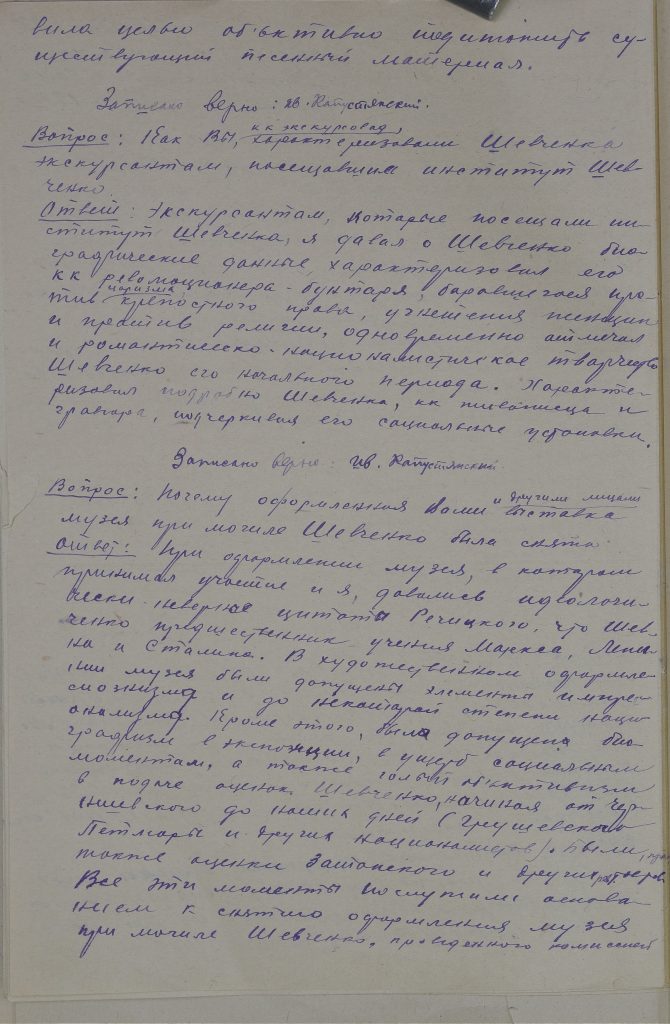 вила целью об'ективно подитожить су-
ществующий песенный материал.
Записано верно: Ив. Капустянский.
Вопрос: Как Вы, кк экскурсовод, характеризовали Шевченка
экскурсантам, посещавшим институт Шев-
ченко.
Ответ: Экскурсантам, которые посещали ин-
ститут Шевченка, я давал о Шевченко био-
графические данные, характеризовал его
кк революционера-бунтаря, боровшегося про-
тив царизма крепостного права, угнетения женщин
и против религии, одновременно отмечал
и романтическо-националистическое творчество
Шевченко его начального периода. Характе-
ризовал подробно Шевченка, кк живописца и
гравера, подчеркивая его социальные установки.
Записано верно: Ив. Капустянский
Вопрос: Почему оформленная Вами и другими лицами выставка
музея при могиле Шевченко была снята
Ответ: При оформлении музея, в котором
принимал участие и я, давались идеологи-
чески-неверные цитаты Речицкого, что Шев-
ченко предшественник учения Маркса, Лени-
на и Сталина. В художественном оформле-
нии музея были допущены элементы импре-
сионизма и до некоторой степени наци-
онализма. Кроме этого, была допущена био-
графизм в экспозиции, в ущерб социальным
моментам, а также голый об'ективизм
в подаче оценок Шевченко, начиная от Чер-
нишевского до наших дней (Грушевского
Петлюры и других националистов). Были,
также оценки Затонского и других
Все эти моменты послужили основа-
нием к снятию оформления музея
при могиле Шевченко, проведенного комиссией